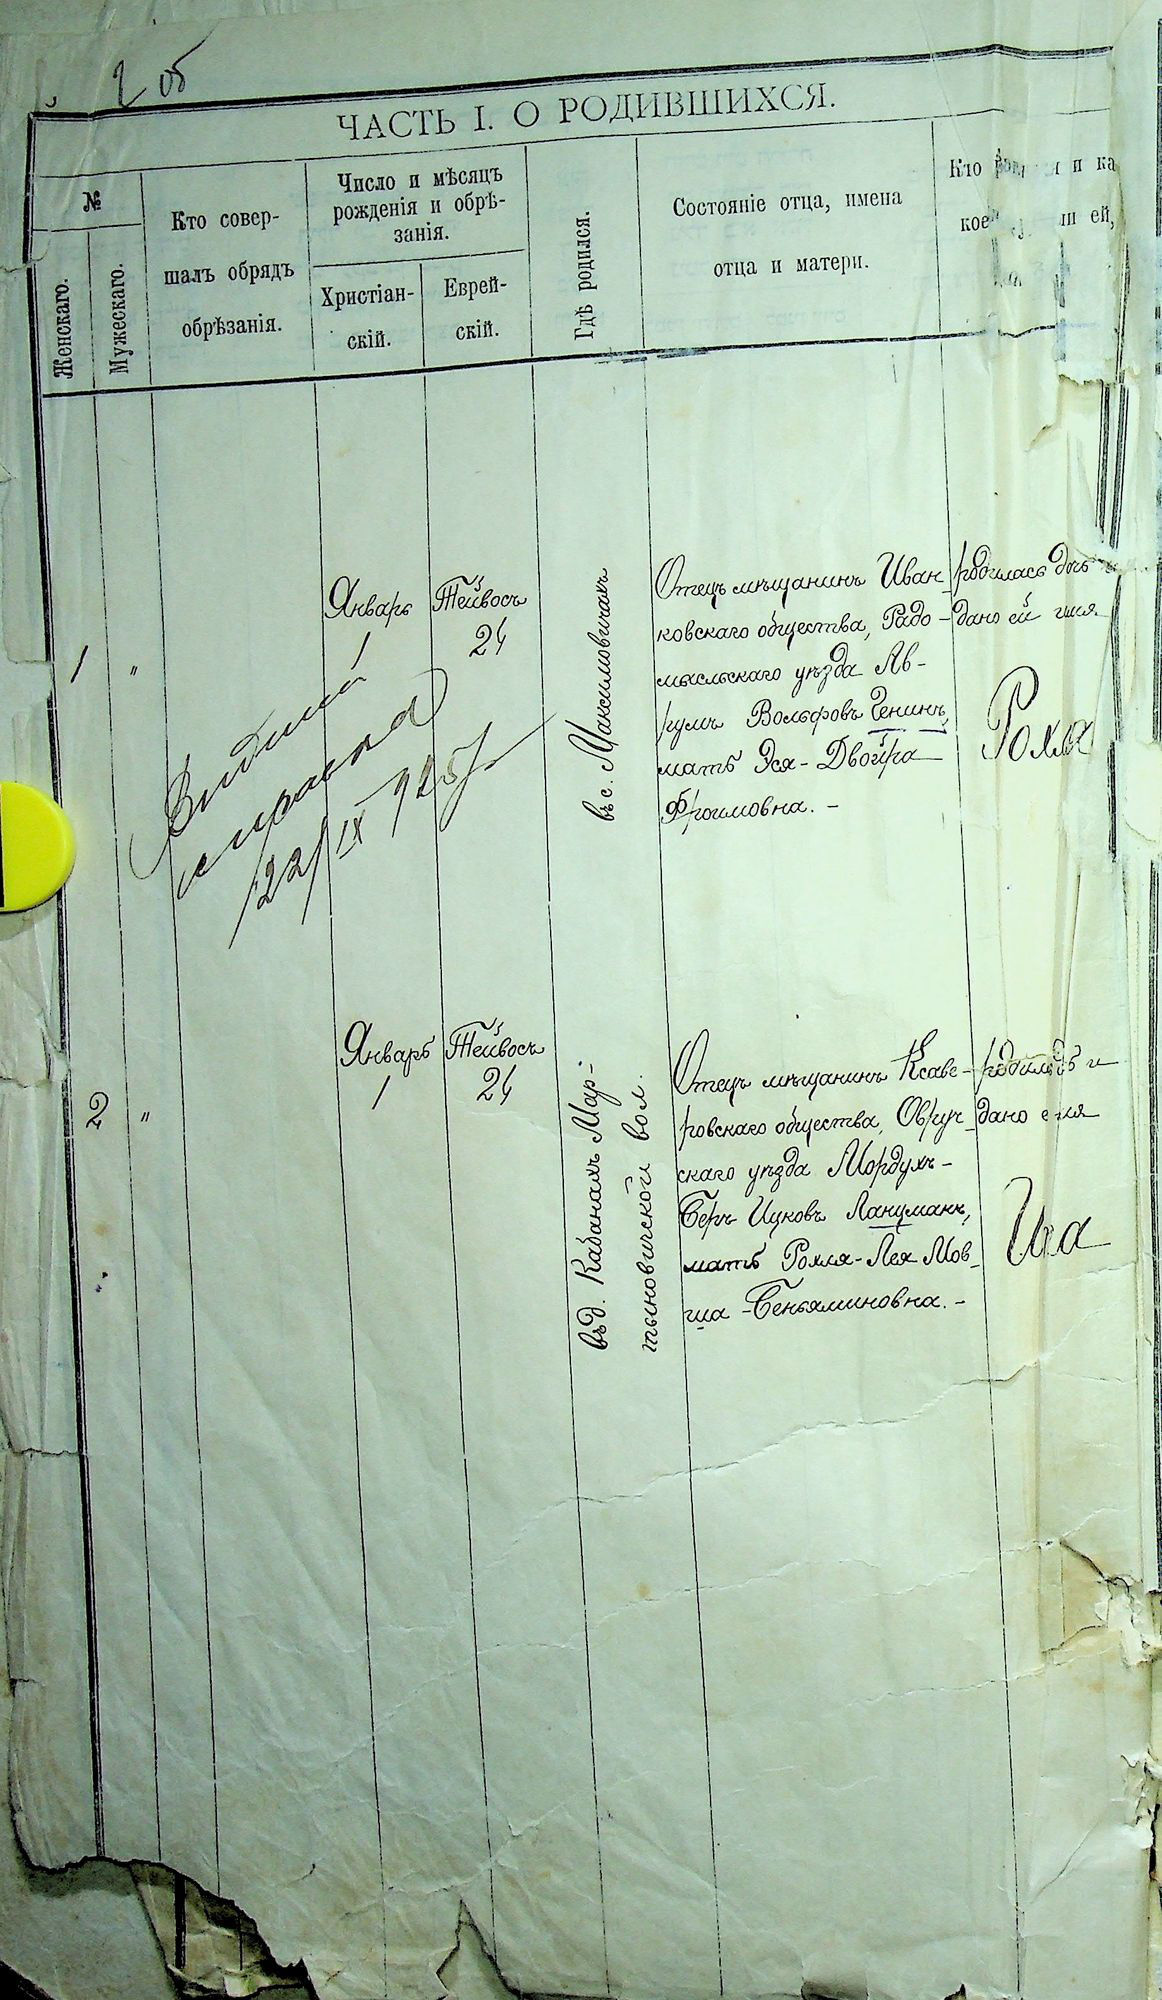 2 об
ЧАСТЬ I. О РОДИВШИХСЯ.
№
Женскаго.
Мужескаго.
Кто совер-
шалъ обрядъ
обрѣзанія.
Число и мѣсяцъ
рожденія и обрѣ-
занія.
Христіан-
скій.
Еврей-
скій.
Гдѣ родился.
Состояніе отца, имена
отца и матери.
Кто и ка
кое ей,
1
"
Январь
1
Тейвосъ
24
въ с. Максимовичахъ
Отецъ мѣщанинъ Иван-
ковскаго общества, Радо-
мысльскаго уѣзда Ав-
румъ Вольфовъ Генинъ,
мать Эся-Двойра
Фроимовна. -
родилась дочь и
дано ей имя
Рохля
справка
22/IX 925 г
2
"
Январь
1
Тейвосъ
24
въ д. Кабанахъ Мар-
тыновичской вол.
Отецъ мѣщанинъ Ксаве-
ровскаго общества, Овруч-
скаго уѣзда Мордухъ-
Беръ Ицковъ Ланцманъ,
мать Рохля-Лея Мов-
ша-Беньяминовна. -
и
дано имя